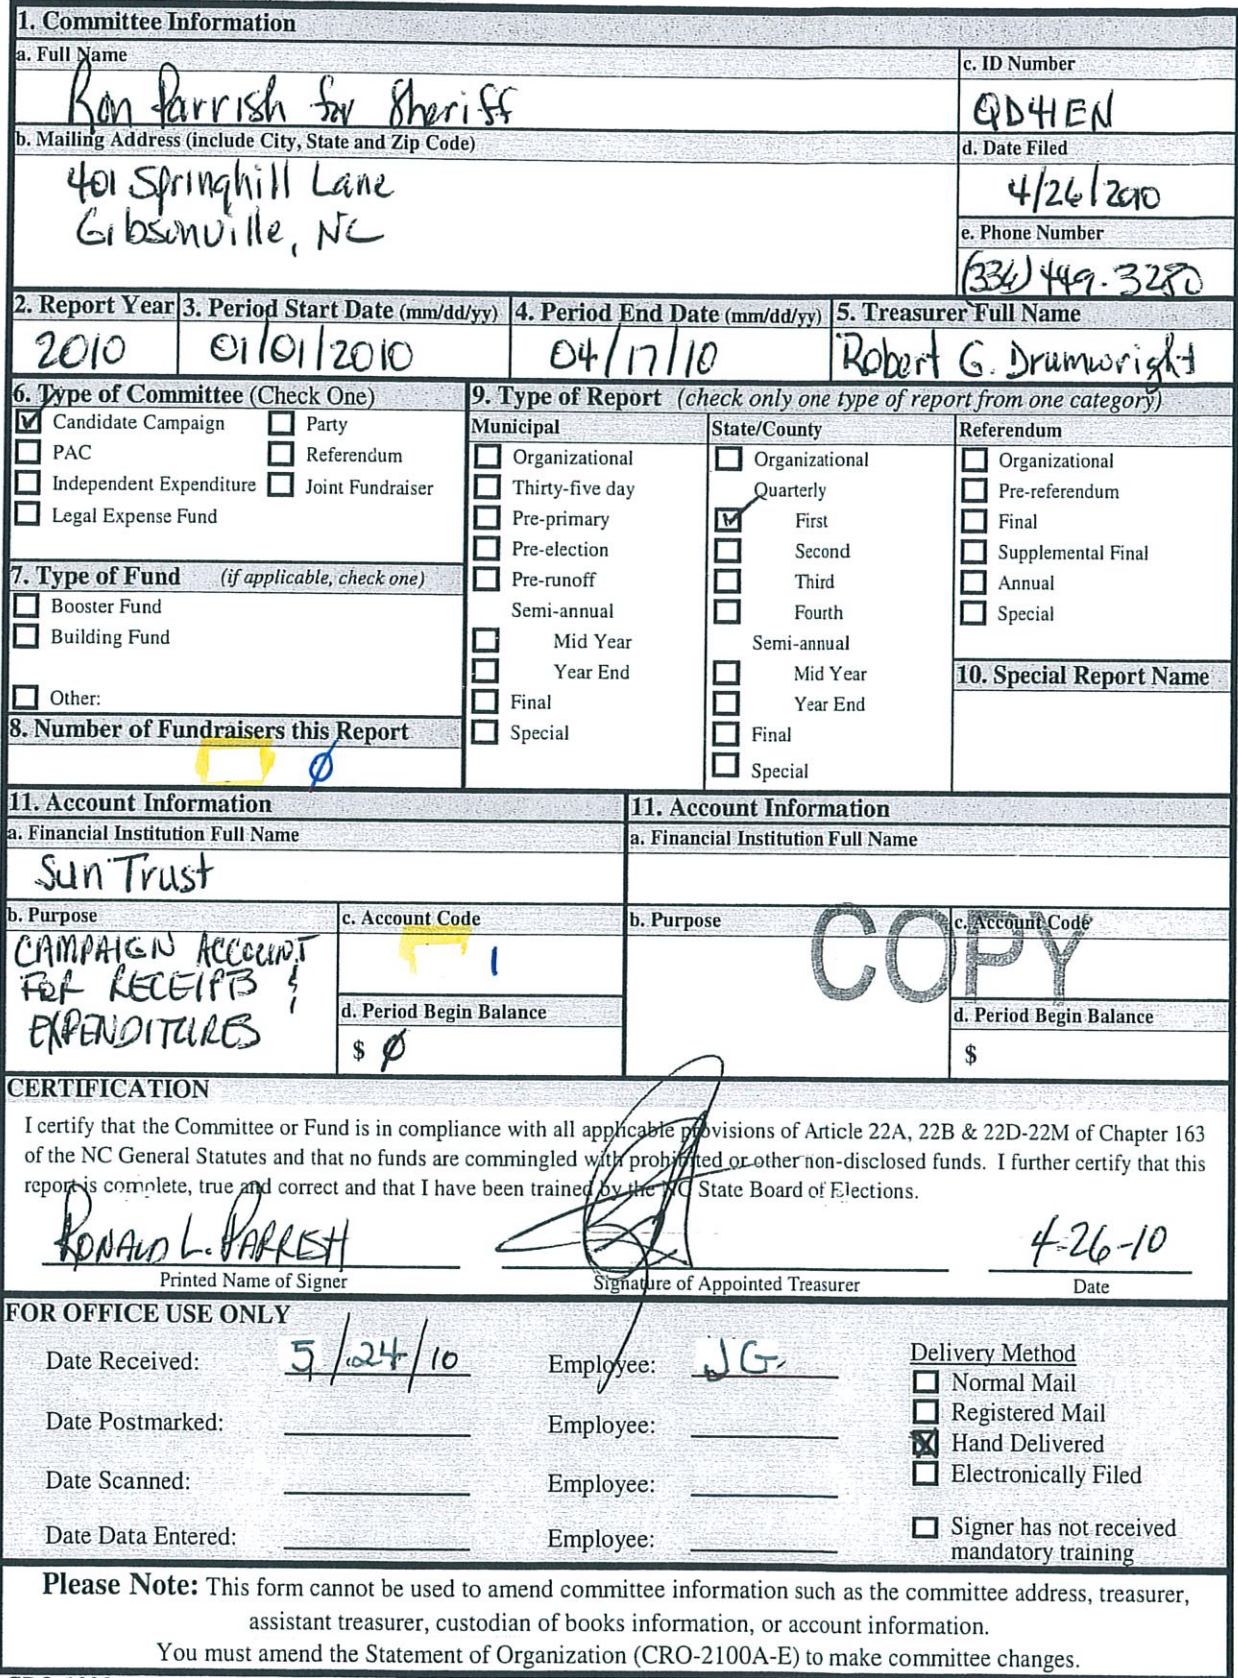 1. Committee Information
a. Full Name
Ron Parrish for Sheriff
c. ID Number
QD41EN
b. Mailing Address (include City, State and Zip Code)
401 Springhill Lane
Gibsonville, NC
d. Date Filed
4/26/2010
e. Phone Number
(336) 449-3280
2. Report Year
2010
3. Period Start Date (mm/dd/yy)
01/01/2010
4. Period End Date (mm/dd/yy)
04/17/10
5. Treasurer Full Name
Robert G. Drumwright
6. Type of Committee (Check One)
Candidate Campaign
Party
PAC
Referendum
Independent Expenditure
Joint Fundraiser
Legal Expense Fund
7. Type of Fund (if applicable, check one)
Booster Fund
Building Fund
Other:
8. Number of Fundraisers this Report
Ø
9. Type of Report (check only one type of report from one category)
Municipal
Organizational
Thirty-five day
Pre-primary
Pre-election
Pre-runoff
Semi-annual
Mid Year
Year End
Final
Special
State/County
Organizational
Quarterly
First
Second
Third
Fourth
Semi-annual
Mid Year
Year End
Final
Special
Referendum
Organizational
Pre-referendum
Final
Supplemental Final
Annual
Special
10. Special Report Name
11. Account Information
a. Financial Institution Full Name
Sun Trust
b. Purpose
CAMPAIGN ACCOUNT
FOR RECEIPTS &
EXPENDITURES
c. Account Code
1
d. Period Begin Balance
$ Ø
11. Account Information
a. Financial Institution Full Name
b. Purpose
c. Account Code
COPY
d. Period Begin Balance
$
CERTIFICATION
I certify that the Committee or Fund is in compliance with all applicable provisions of Article 22A, 22B & 22D-22M of Chapter 163
of the NC General Statutes and that no funds are commingled with prohibited or other non-disclosed funds. I further certify that this
report is complete, true and correct and that I have been trained by the NC State Board of Elections.
RONALD L. PARRISH
4-26-10
Printed Name of Signer
Signature of Appointed Treasurer
Date
FOR OFFICE USE ONLY
Date Received: 5/24/10
Employee: JG.
Date Postmarked:
Employee:
Date Scanned:
Employee:
Date Data Entered:
Employee:
Delivery Method
Normal Mail
Registered Mail
Hand Delivered
Electronically Filed
Signer has not received
mandatory training
Please Note: This form cannot be used to amend committee information such as the committee address, treasurer,
assistant treasurer, custodian of books information, or account information.
You must amend the Statement of Organization (CRO-2100A-E) to make committee changes.